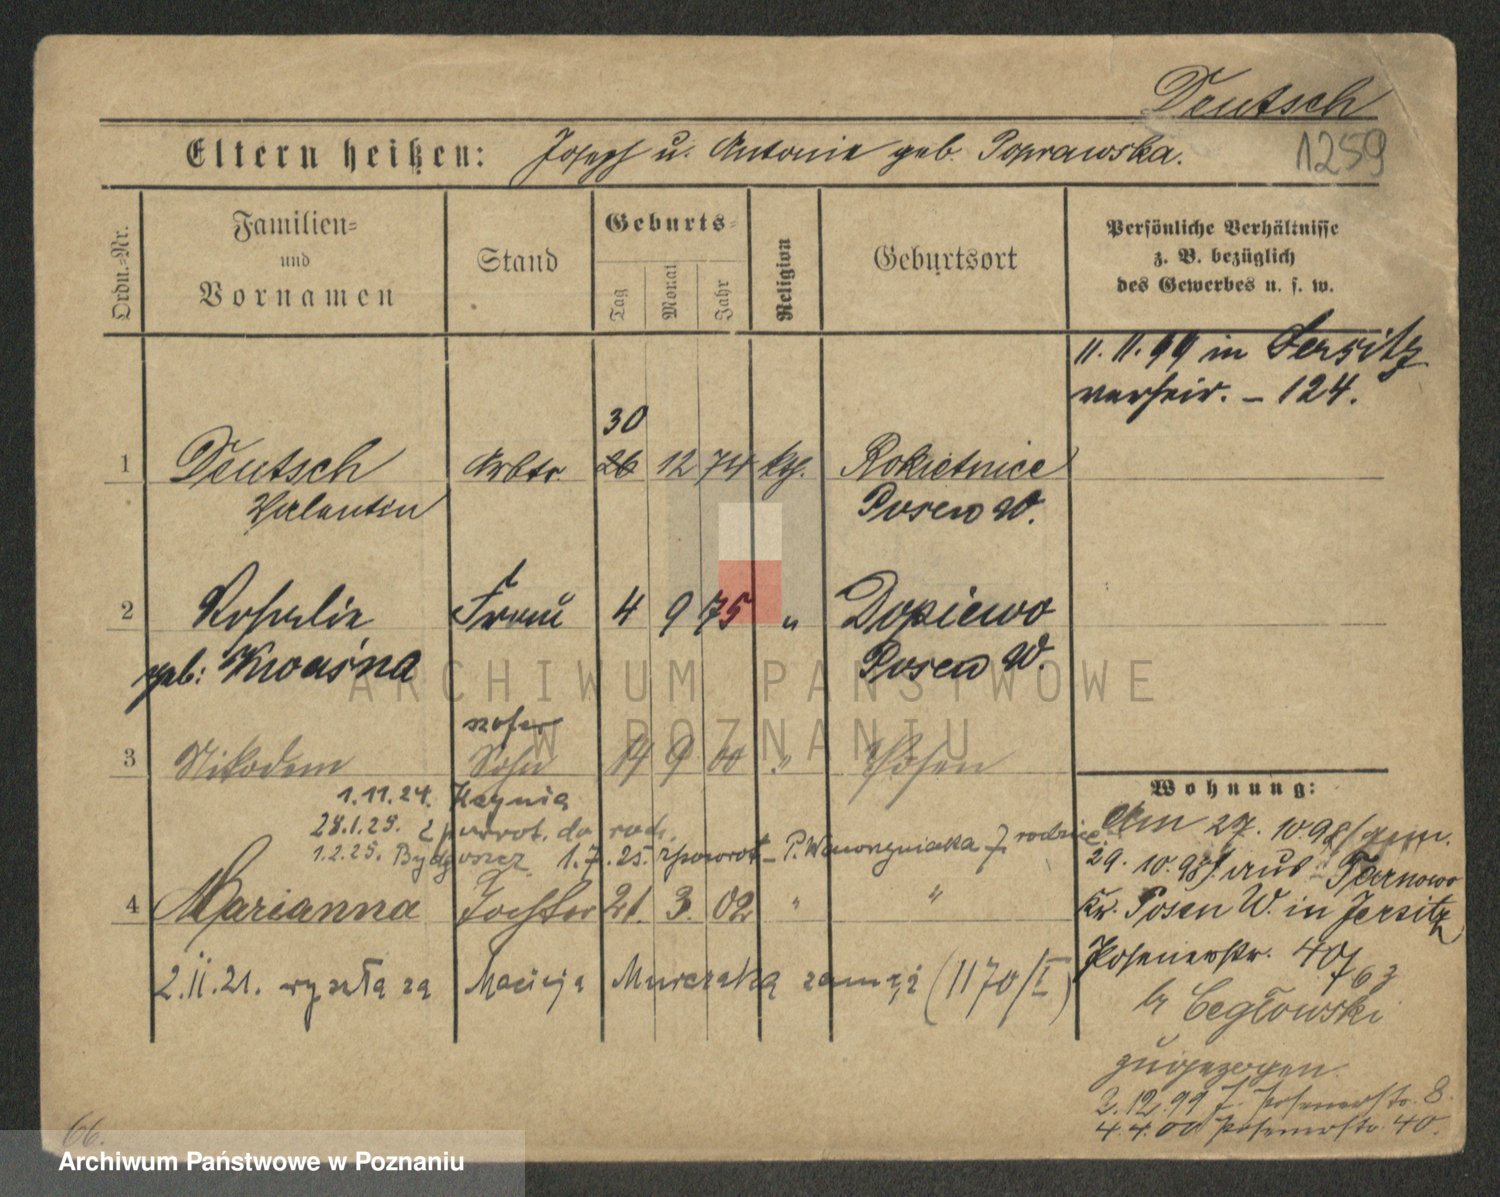 Deutsch
1259
Eltern heißen: Joseph u. Antonie geb. Poprawska.
Ordn.-Nr.
Familien-
und
Vornamen
Stand
Geburts-
Tag
Monat
Jahr
Religion
Geburtsort
Persönliche Verhältnisse
z. B. bezüglich
des Gewerbes u. s. w.
11. 11. 99 in Jersitz
verheir. – 124.
30
1 Deutsch Arbtr. 26 12 74 kth. Rokietnice
Valentin Posen W.
2 Rosalie Frau 4 9 75 " Dopiewo
geb: Kwaśna Posen W.
szofer
3 Nikodem Sohn 14 9 00 " Posen
1.11.24. Kcynia
28.1.25. z powrot. do rodz.
1.2.25. Bydgoszcz 1.7.25. zpowrot – P. Wawrzyniaka 7 rodzice
4 Marianna Tochter 21. 3. 02 " "
2.II.21. wyszła za Macieja Murczaka zamąż (1170/I)
Wohnung:
Am 29. 10. 98/gem.
29. 10. 98/ aus Tarnowo
Kr. Posen W. in Jersitz
Posenerstr. 40/63
b Cegłowski
zugezogen
2.12.99 J. Posenerstr. 8.
4.4.00 Posenerstr. 40.
66.
ARCHIWUM PAŃSTWOWE
W POZNANIU
Archiwum Państwowe w Poznaniu